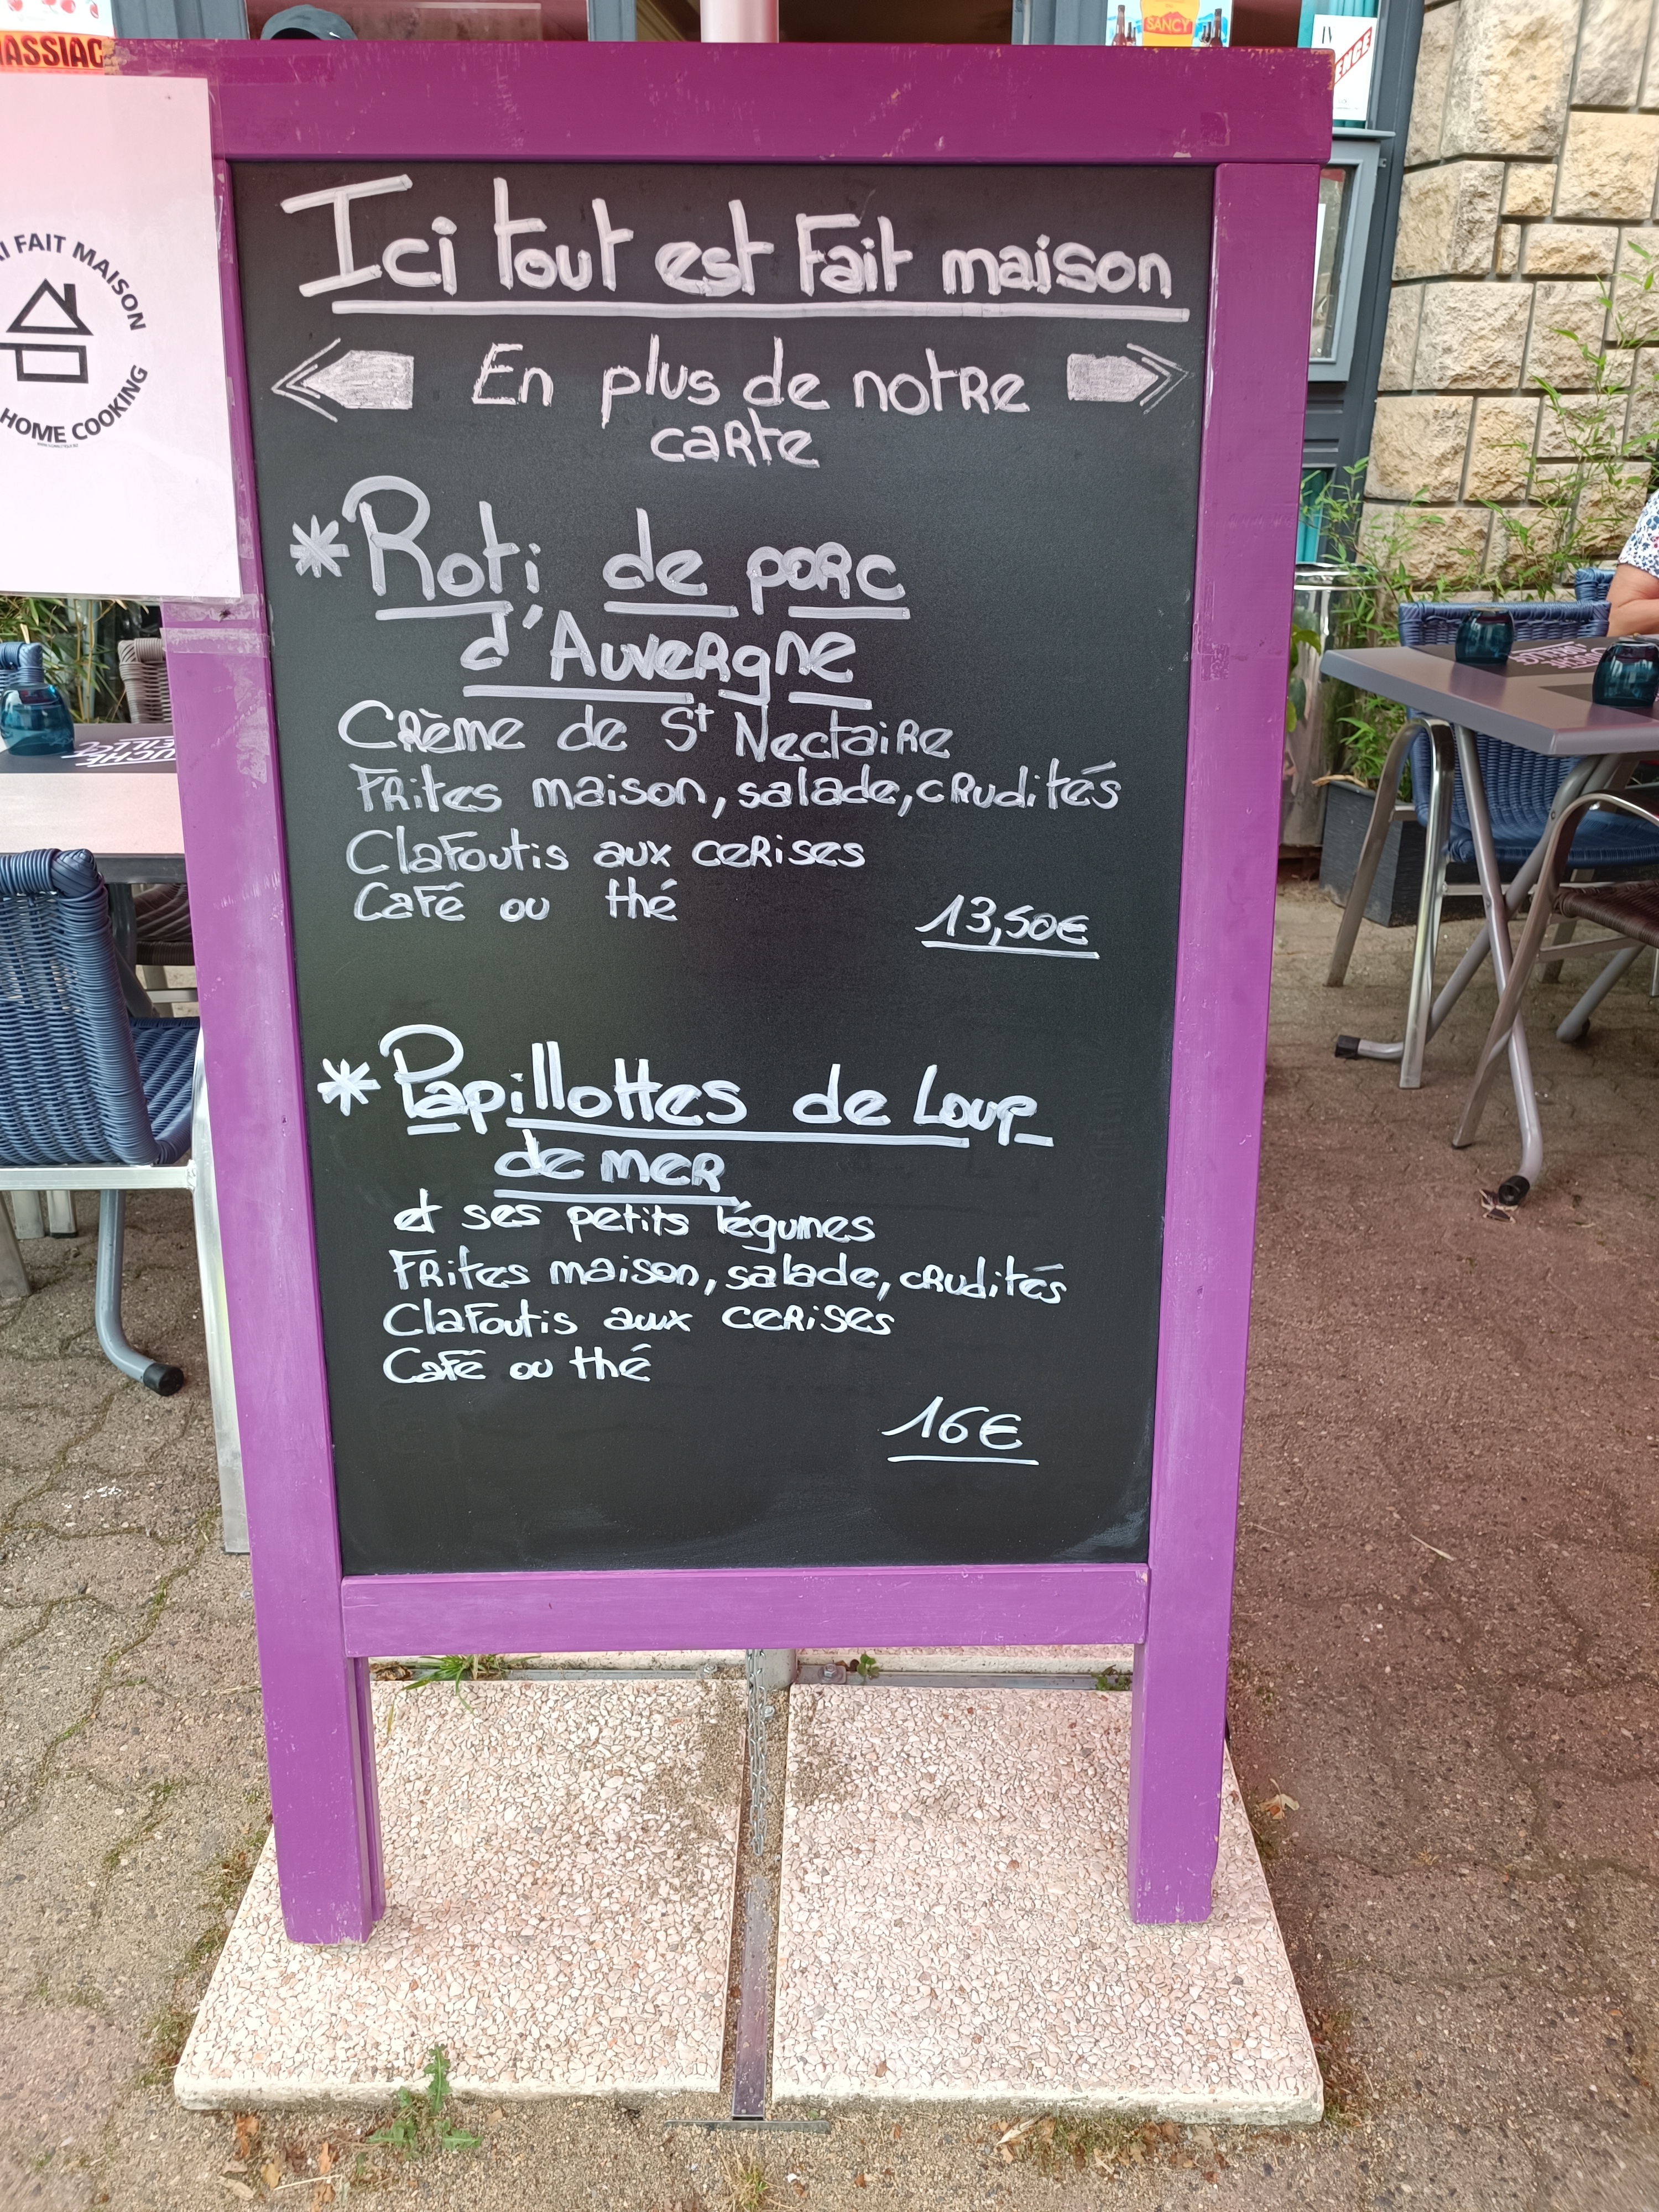 MASSIAC
SANCY
FAIT MAISON
HOME COOKING
Ici tout est Fait maison
En plus de notre
carte
*Roti de porc
d'Auvergne
Crème de St Nectaire
Frites maison, salade, crudités
Clafoutis aux cerises
Café ou thé
13,50€
*Papillottes de Loup
de mer
et ses petits légumes
Frites maison, salade, crudités
Clafoutis aux cerises
Café ou thé
16€